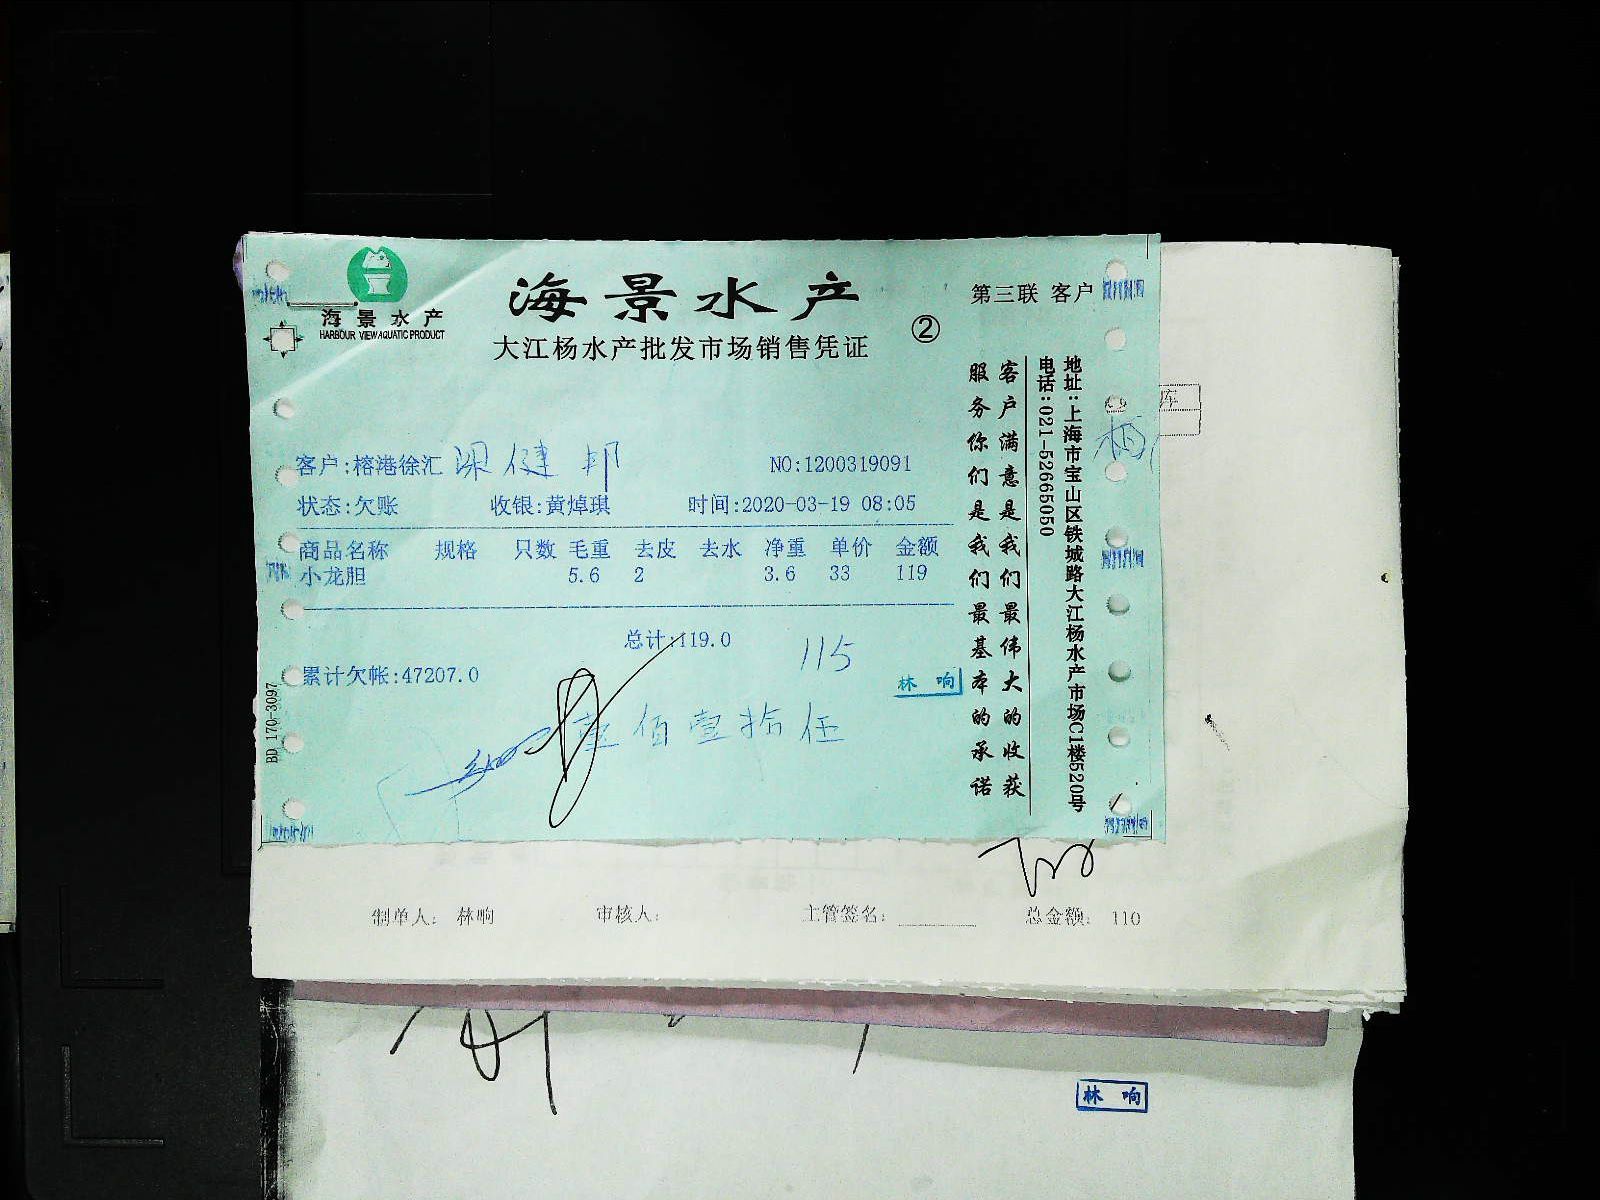 海景水产
HARBOUR VIEW AQUATIC PRODUCT
海景水产
大江杨水产批发市场销售凭证
②
第三联 客户
客户:榕港徐汇 梁健邦
NO:1200319091
状态:欠账 收银:黄焯琪 时间:2020-03-19 08:05
商品名称 规格 只数 毛重 去皮 去水 净重 单价 金额
小龙胆 5.6 2 3.6 33 119
总计:119.0
115
累计欠帐:47207.0
林响
壹佰壹拾伍
BD 170-3097
客户满意是我们最伟大的收获
服务你们是我们最基本的承诺
地址:上海市宝山区铁城路大江杨水产市场C1楼520号
电话:021-52665050
库
制单人: 林响 审核人: 主管签名: 总金额: 110
林响